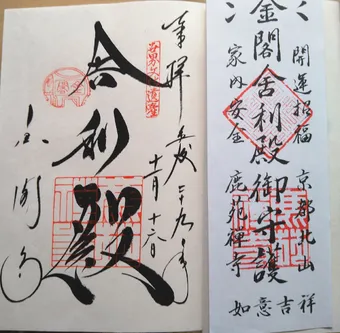 開運招福 京都北山
金閣舎利殿御守護
家内安全 鹿苑禅寺
如意吉祥
奉拝 平成二十九年
世界文化遺産
舎利殿
金閣寺